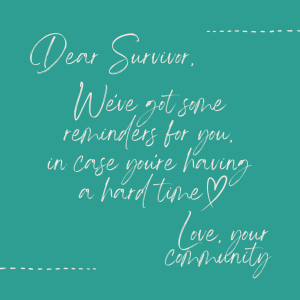 Dear Survivor,
We've got some
reminders for you,
in case you're having
a hard time
Love, your
community